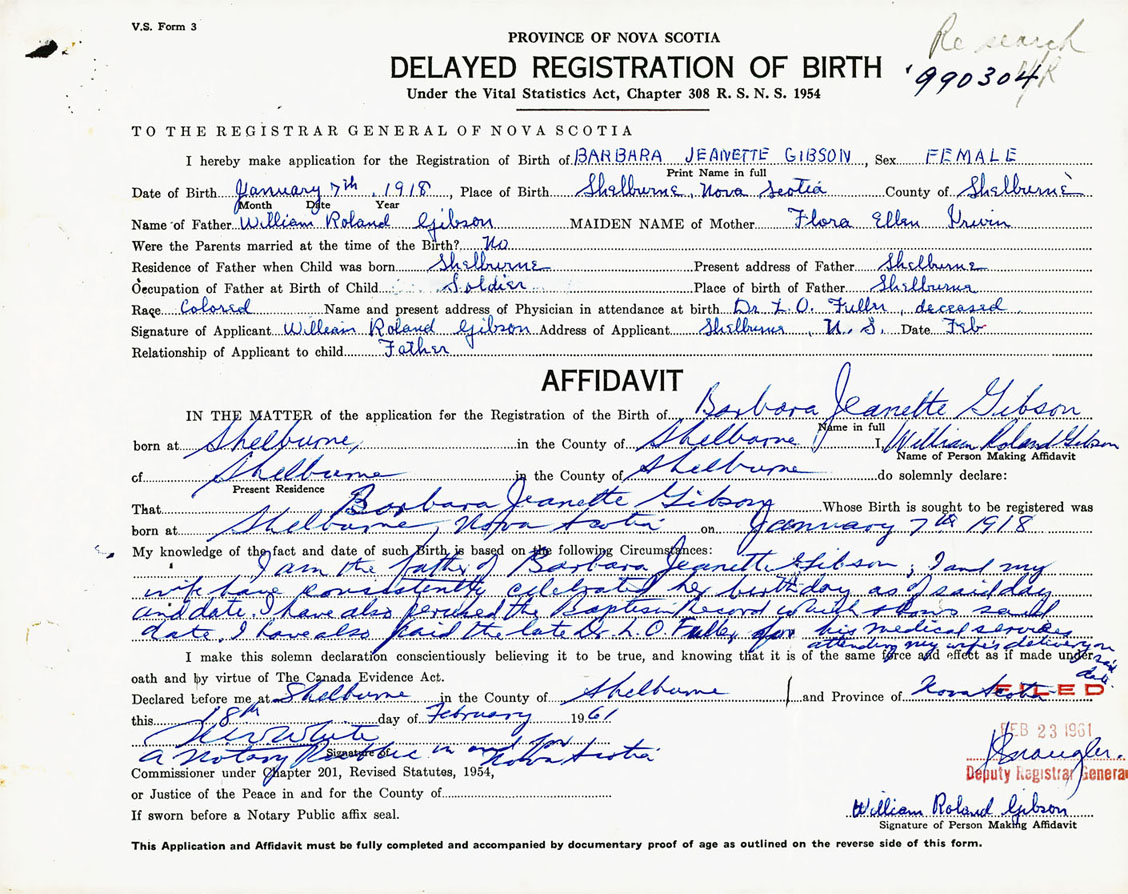 V.S. Form 3
Re search
PROVINCE OF NOVA SCOTIA
DELAYED REGISTRATION OF BIRTH
990304
Under the Vital Statistics Act, Chapter 308 R. S. N. S. 1954
TO THE REGISTRAR GENERAL OF NOVA SCOTIA
I hereby make application for the Registration of Birth of BARBARA JEANETTE GIBSON, Sex FEMALE
Print Name in full
Date of Birth January 7th, 1918, Place of Birth Shelburne, Nova Scotia County of Shelburne
Month Date Year
Name of Father William Roland Gibson MAIDEN NAME of Mother Flora Ellen Irwin
Were the Parents married at the time of the Birth? No
Residence of Father when Child was born Shelburne Present address of Father Shelburne
Occupation of Father at Birth of Child Soldier Place of birth of Father Shelburne
Race Colored Name and present address of Physician in attendance at birth Dr. L.O. Fuller, deceased
Signature of Applicant William Roland Gibson Address of Applicant Shelburne, N. S. Date Feb
Relationship of Applicant to child Father
AFFIDAVIT
IN THE MATTER of the application for the Registration of the Birth of Barbara Jeanette Gibson
Name in full
born at Shelburne, in the County of Shelburne I, William Roland Gibson
Name of Person Making Affidavit
of Shelburne in the County of Shelburne do solemnly declare:
Present Residence
That Barbara Jeanette Gibson Whose Birth is sought to be registered was
born at Shelburne, Nova Scotia on January 7th 1918
My knowledge of the fact and date of such Birth is based on the following Circumstances:
I am the father of Barbara Jeanette Gibson; I and my
wife have consistently celebrated her birthday as of said day
and date. I have also perused the Baptism Record which shows said
date. I have also paid the late Dr. L.O. Fuller for his medical services
attending my wife's delivery on said date.
I make this solemn declaration conscientiously believing it to be true, and knowing that it is of the same force and effect as if made under
oath and by virtue of The Canada Evidence Act.
Declared before me at Shelburne in the County of Shelburne and Province of Nova Scotia
FILED
this 18th day of February 1961
FEB 23 1961
A Notary Public in and for Nova Scotia
Signature of
Commissioner under Chapter 201, Revised Statutes, 1954,
Deputy Registrar General
or Justice of the Peace in and for the County of
William Roland Gibson
If sworn before a Notary Public affix seal.
Signature of Person Making Affidavit
This Application and Affidavit must be fully completed and accompanied by documentary proof of age as outlined on the reverse side of this form.